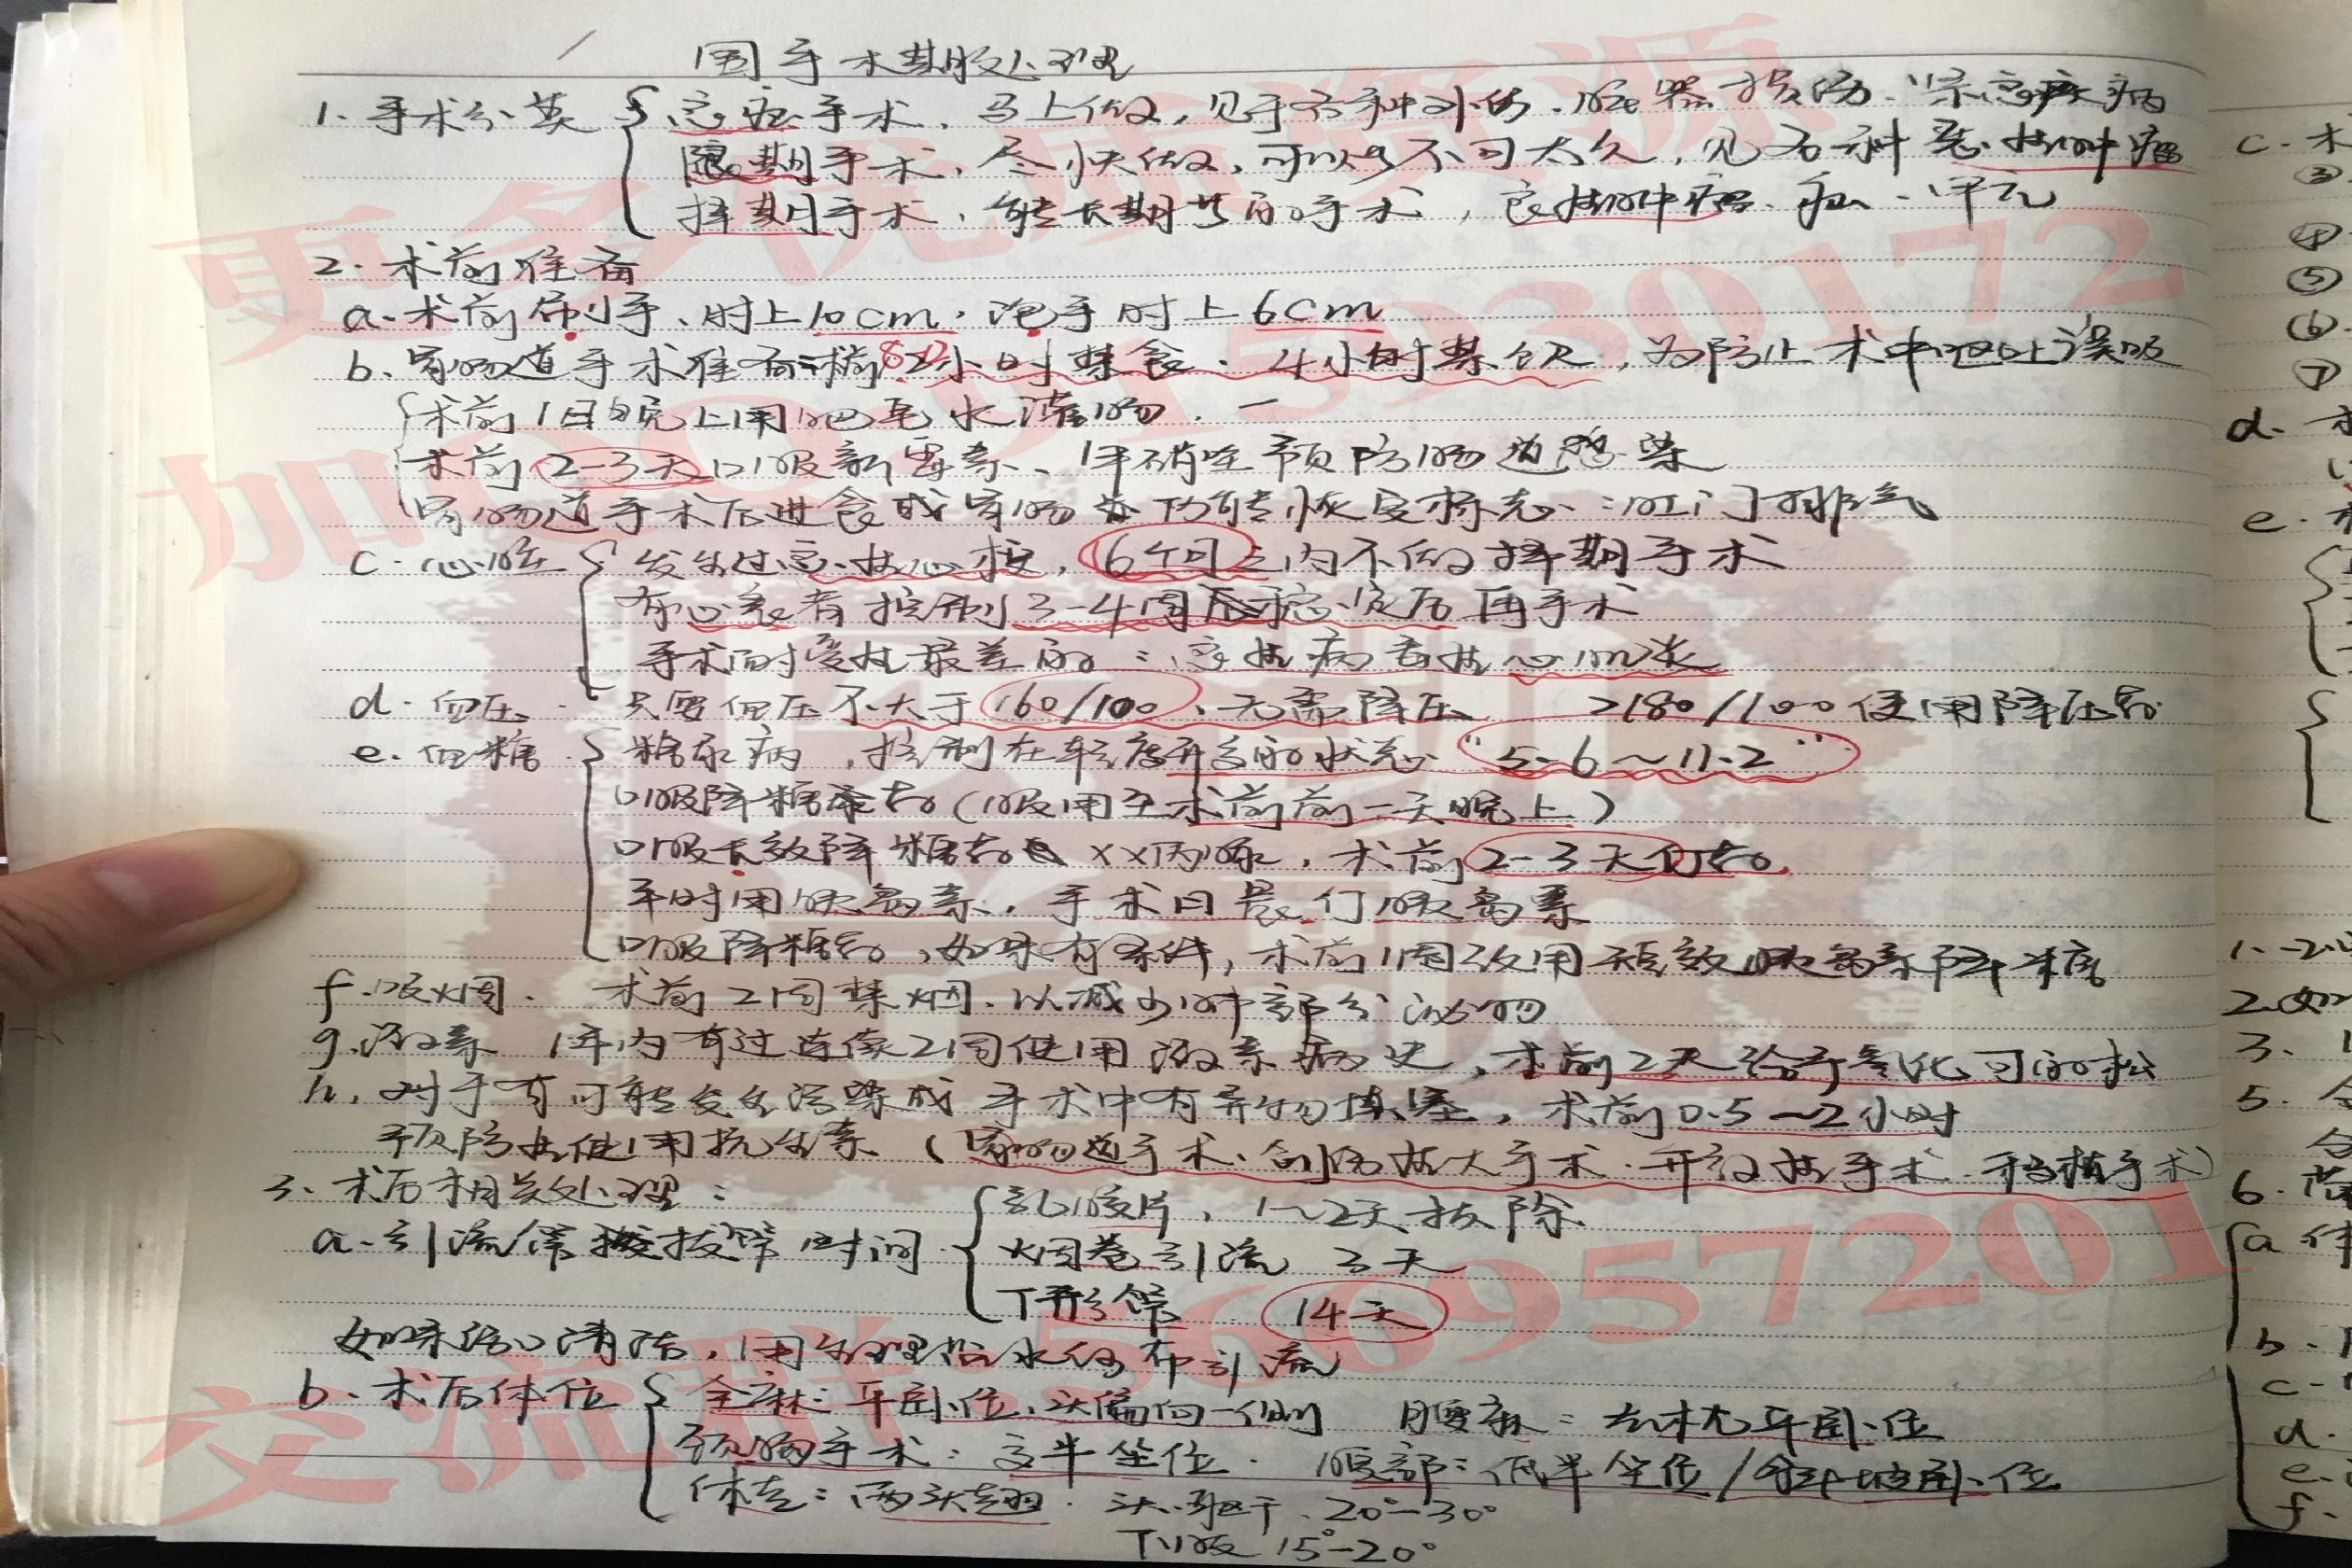 围手术期处理
1. 手术分类 急症手术、马上做，见于各种外伤、脏器损伤、紧急疾病
限期手术，尽快做，可以等不可太久，见各种恶性肿瘤
择期手术，能长期等的手术，良性肿瘤、疝、甲亢
2. 术前准备
a. 术前刷手、肘上10cm. 泡手肘上6cm
b. 胃肠道手术准备：术前8-12小时禁食. 4小时禁饮，为防止术中呕吐误吸
术前1日晚上用肥皂水灌肠.
术前2-3天口服新霉素、甲硝唑预防肠道感染
胃肠道手术后进食或胃肠道功能恢复标志：肛门排气
c. 心脏 发生过急性心梗，6个月之内不做择期手术
有心衰者控制3-4周后 再手术
手术耐受性最差的：急性病毒性心肌炎
d. 血压 只要血压不大于160/100、无需降压 >180/100使用降压药
e. 血糖 糖尿病，控制在轻度升高的状态 "5.6~11.2"
口服降糖药（服用至术前前一天晚上）
口服长效降糖药 XX丙脲，术前2-3天停药
平时用胰岛素，手术日晨停胰岛素
口服降糖药，如果有条件，术前1周改用短效胰岛素降糖
f. 吸烟. 术前2周禁烟. 以减少肺部分泌物
g. 激素 1年内有过连续2周使用激素病史，术前2天给予氢化可的松
h. 对于有可能发生污染或手术中有异物填塞，术前0.5~2小时
预防性使用抗生素.（胃肠道手术、创伤性大手术. 开放性手术. 移植手术）
3. 术后相关处理：
a. 引流管拔管时间 乳胶片，1~2天拔除
烟卷引流 3天
T形管 14天
如果伤口清洁，用生理盐水纱布引流
b. 术后体位 全麻：平卧位、头偏向一侧 腰麻：去枕平卧位
颈胸手术：高半坐位. 腹部：低半坐位/斜坡卧位
休克：两头翘. 头.躯干. 20°-30°
下肢15°-20°
更多优质资源
加QQ:1545930172
交流群:560957201
c. 术
③
④
⑤
⑥
⑦
d. 术
e. 术
1.
2. 如
3.
5.
6.
a 体
b.
c.
d.
e.
f.